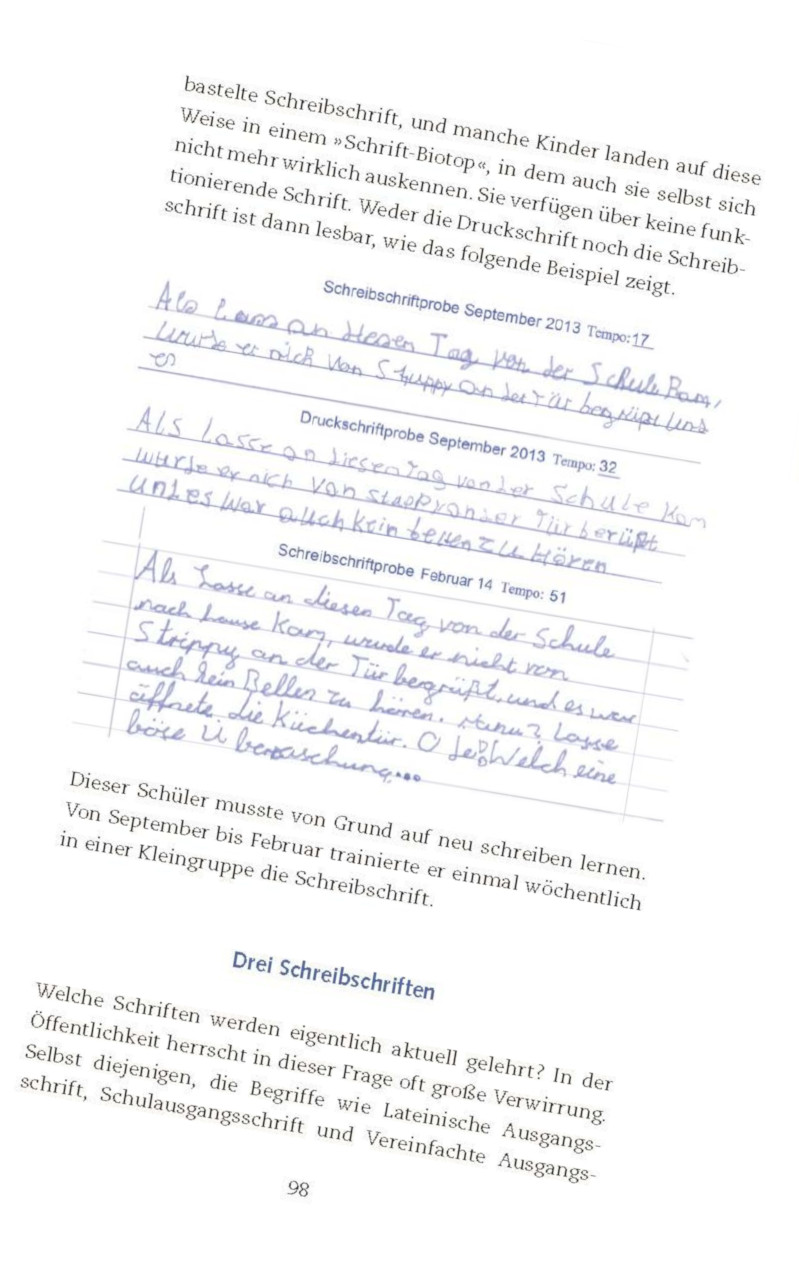 bastelte Schreibschrift, und manche Kinder landen auf diese
Weise in einem »Schrift-Biotop«, in dem auch sie selbst sich
nicht mehr wirklich auskennen. Sie verfügen über keine funk-
tionierende Schrift. Weder die Druckschrift noch die Schreib-
schrift ist dann lesbar, wie das folgende Beispiel zeigt.
Schreibschriftprobe September 2013 Tempo: 17
Als an Tag von der Schule Kam,
wurde er nich Van an der Tür und
es
Druckschriftprobe September 2013 Tempo: 32
Als Lasse an diesen Tag von der Schule Kam
wurde er nich Von an der Tür berüßt
und es War auch kein bellen zu Hören
Schreibschriftprobe Februar 14 Tempo: 51
Als Lasse an diesen Tag von der Schule
nach hause Kam, wurde er nicht von
Strippy an der Tür bergrüßt, und es war
auch kein Bellen zu hören. Lasse
öffnete die Küchentür. O je! Welch eine
böse Überraschung...
Dieser Schüler musste von Grund auf neu schreiben lernen.
Von September bis Februar trainierte er einmal wöchentlich
in einer Kleingruppe die Schreibschrift.
Drei Schreibschriften
Welche Schriften werden eigentlich aktuell gelehrt? In der
Öffentlichkeit herrscht in dieser Frage oft große Verwirrung.
Selbst diejenigen, die Begriffe wie Lateinische Ausgangs-
schrift, Schulausgangsschrift und Vereinfachte Ausgangs-
98